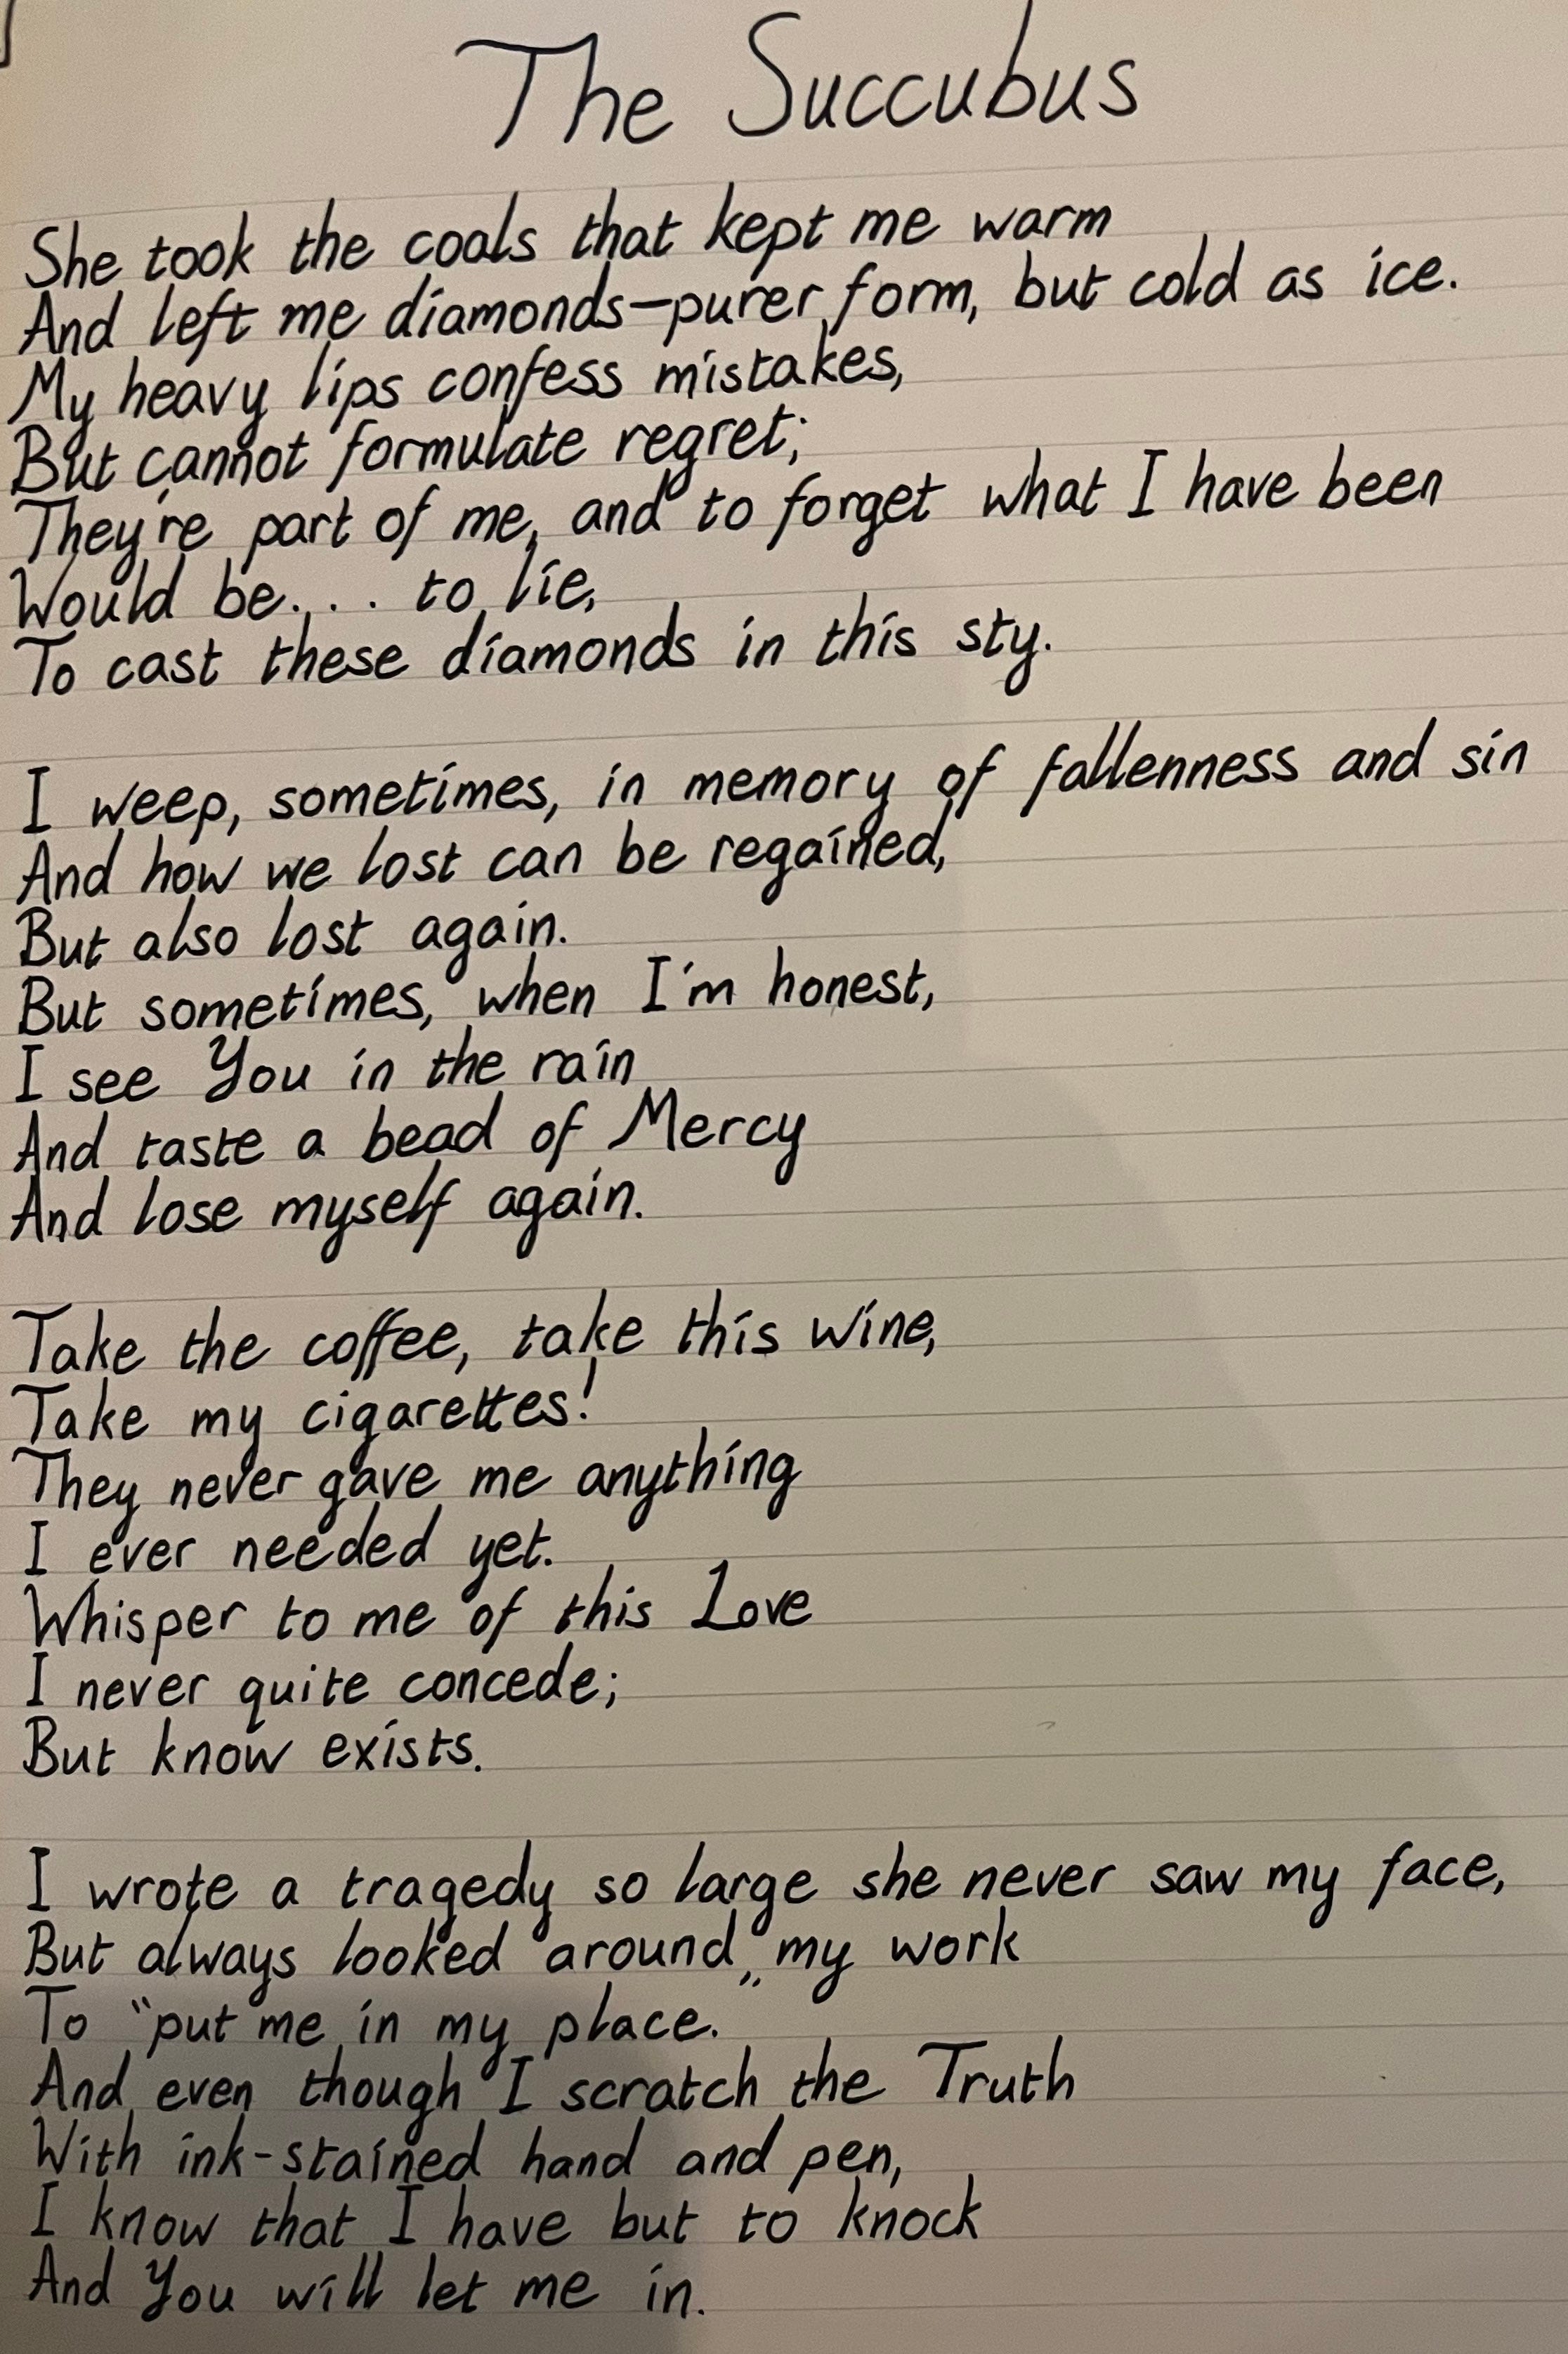 The Succubus
She took the coals that kept me warm
And left me diamonds—purer form, but cold as ice.
My heavy lips confess mistakes,
But cannot formulate regret;
They're part of me, and to forget what I have been
Would be... to lie,
To cast these diamonds in this sty.
I weep, sometimes, in memory of fallenness and sin
And how we lost can be regained,
But also lost again.
But sometimes, when I'm honest,
I see You in the rain
And taste a bead of Mercy
And lose myself again.
Take the coffee, take this wine,
Take my cigarettes!
They never gave me anything
I ever needed yet.
Whisper to me of this Love
I never quite concede;
But know exists.
I wrote a tragedy so large she never saw my face,
But always looked around my work
To “put me in my place.”
And even though I scratch the Truth
With ink-stained hand and pen,
I know that I have but to knock
And You will let me in.